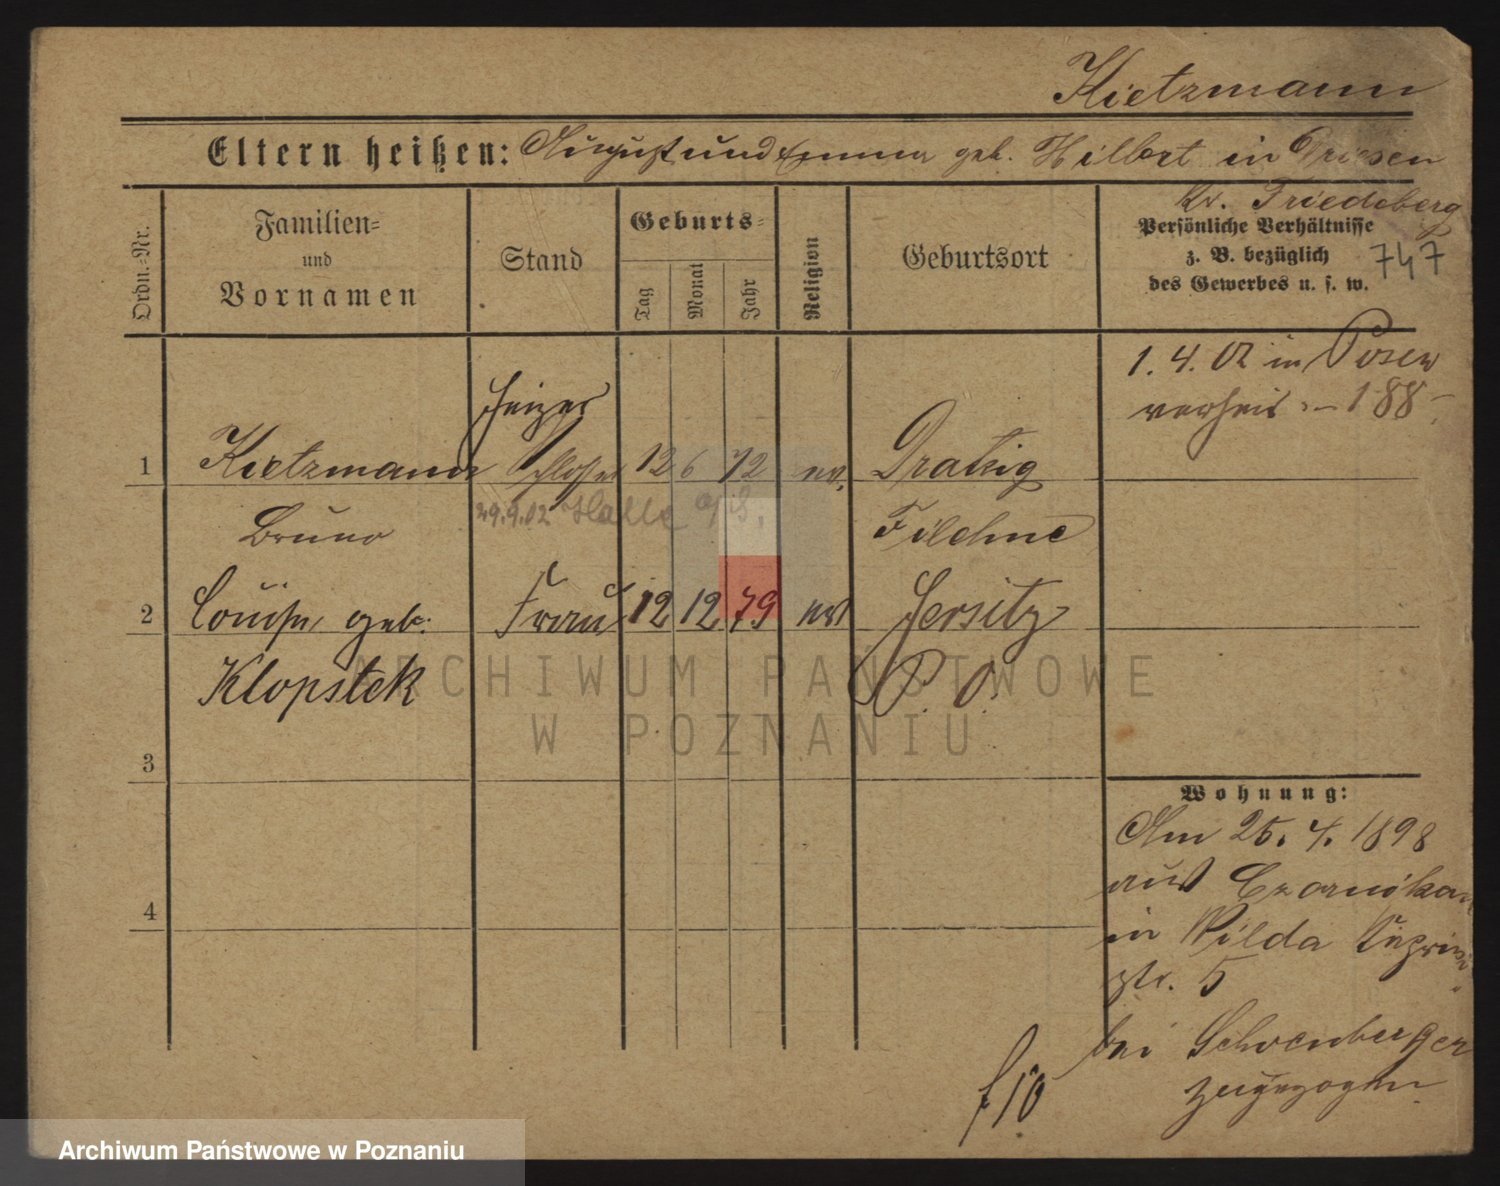 Kietzmann
Eltern heißen: August und Emma geb. Hilbert in Driesen
Kr. Friedeberg
Ordn.-Nr.
Familien-
und
Vornamen
Stand
Geburts-
Tag
Monat
Jahr
Religion
Geburtsort
Persönliche Verhältnisse
z. B. bezüglich
des Gewerbes u. s. w.
747
1. 4. 02 in Posen
verheir. – 188 –
Heizer
1 Kietzmann Schlosser 12 6 72 ev. Dratzig
29.9.02 Halle a/S.
Bruno Filehne
2 Louise geb. Frau 12 12 79 ev Jersitz
Klopstek P. O.
3
4
Wohnung:
Am 25. 4. 1898
aus Czarnikau
in Wilda
str. 5
bei Schoenberger
zugezogen
f 10
ARCHIWUM PAŃSTWOWE
W POZNANIU
Archiwum Państwowe w Poznaniu